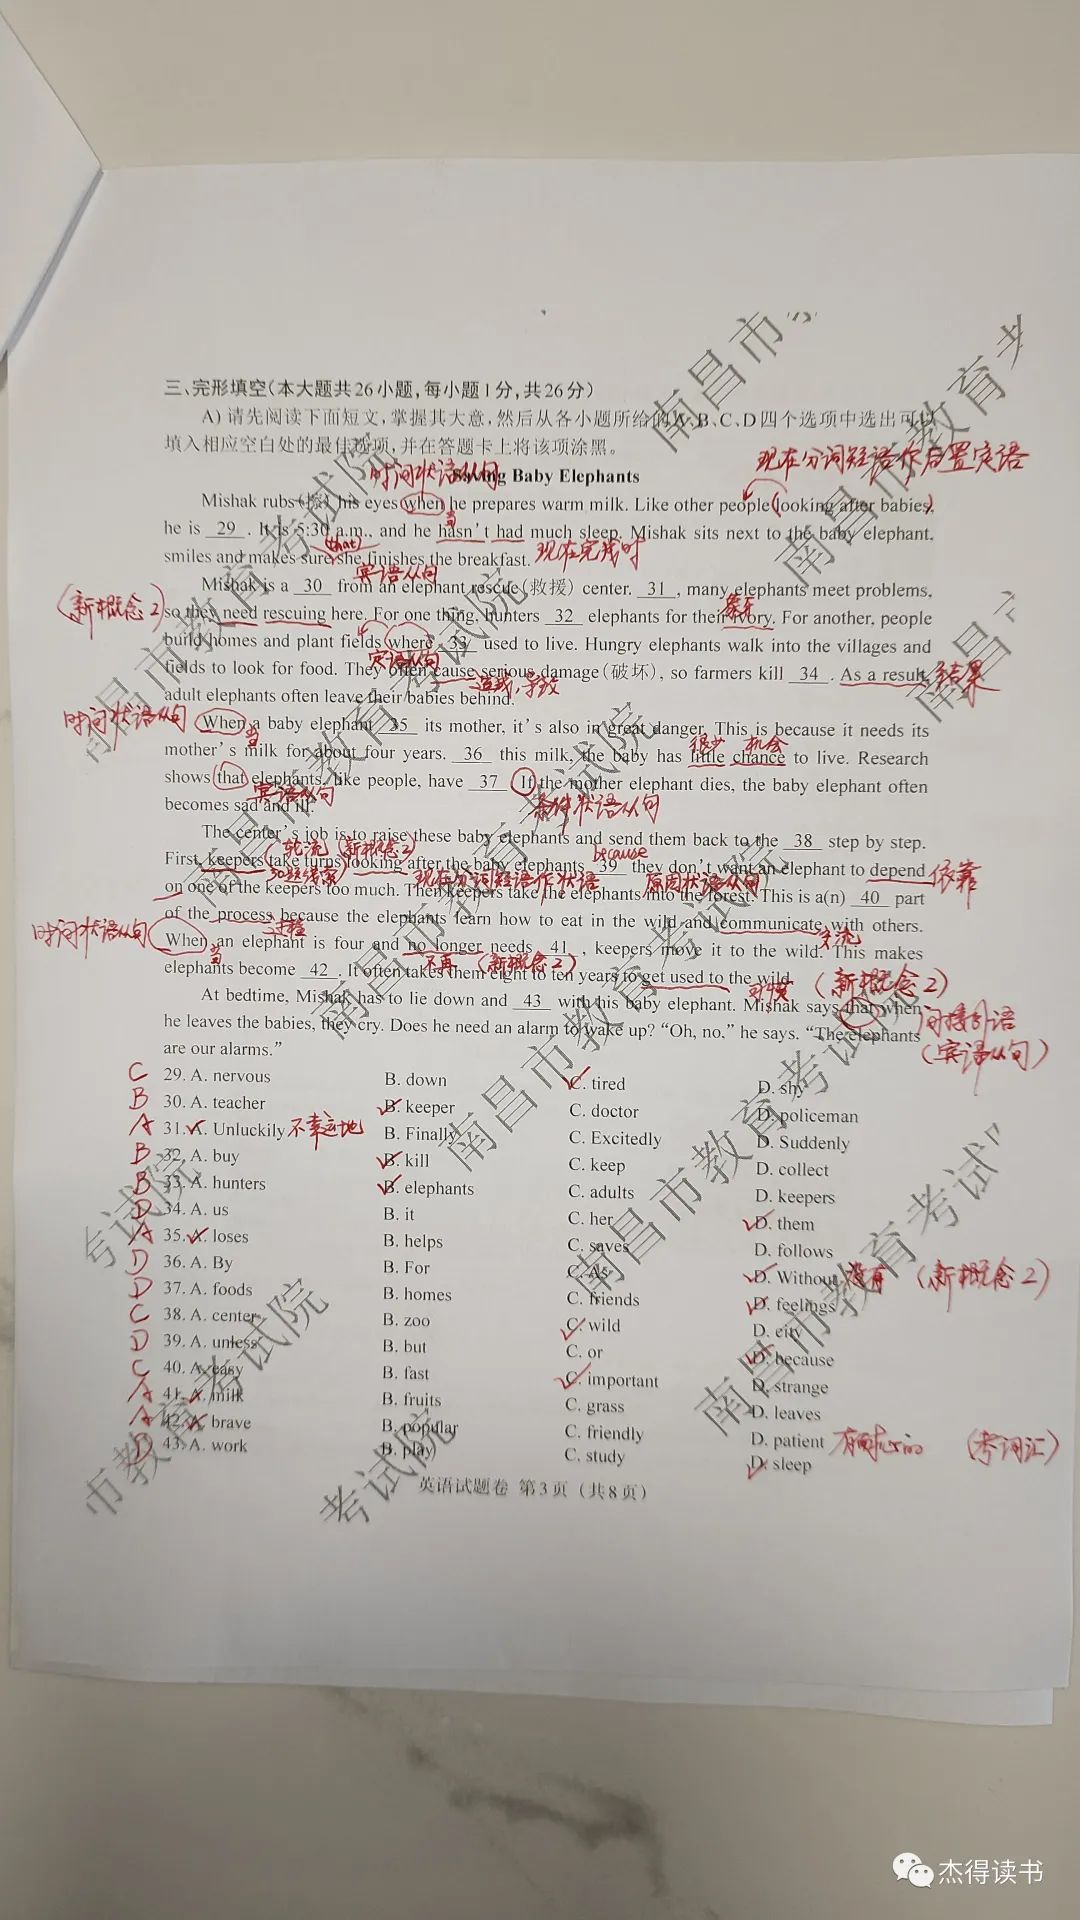 三、完形填空(本大题共26小题,每小题1分,共26分)
A) 请先阅读下面短文,掌握其大意,然后从各小题所给的A、B、C、D四个选项中选出可以
填入相应空白处的最佳选项,并在答题卡上将该项涂黑。
时间状语从句
现在分词短语作后置定语
Saving Baby Elephants
Mishak rubs(擦) his eyes when he prepares warm milk. Like other people looking after babies,
当
he is 29 . It is 5:30 a.m., and he hasn't had much sleep. Mishak sits next to the baby elephant,
(that)
smiles and makes sure she finishes the breakfast.
现在完成时
宾语从句
Mishak is a 30 from an elephant rescue(救援) center. 31 , many elephants meet problems,
(新概念2)
象牙
so they need rescuing here. For one thing, hunters 32 elephants for their ivory. For another, people
build homes and plant fields where 33 used to live. Hungry elephants walk into the villages and
定语从句
fields to look for food. They often cause serious damage(破坏), so farmers kill 34 . As a result,
结果
造成,导致
adult elephants often leave their babies behind.
时间状语从句
When a baby elephant 35 its mother, it's also in great danger. This is because it needs its
当
很少 机会
mother's milk for about four years. 36 this milk, the baby has little chance to live. Research
shows that elephants, like people, have 37 . If the mother elephant dies, the baby elephant often
宾语从句
条件状语从句
becomes sad and ill.
The center's job is to raise these baby elephants and send them back to the 38 step by step.
轮流 (新概念2)
because
First, keepers take turns looking after the baby elephants 39 they don't want an elephant to depend
依靠
30题线索
现在分词短语作状语
原因状语从句
on one of the keepers too much. Then keepers take the elephants into the forest. This is a(n) 40 part
of the process because the elephants learn how to eat in the wild and communicate with others.
过程
交流
时间状语从句
When an elephant is four and no longer needs 41 , keepers move it to the wild. This makes
当
不再 (新概念2)
elephants become 42 . It often takes them eight to ten years to get used to the wild.
习惯 (新概念2)
At bedtime, Mishak has to lie down and 43 with his baby elephant. Mishak says that when
间接引语
(宾语从句)
he leaves the babies, they cry. Does he need an alarm to wake up? “Oh, no,” he says. “The elephants
are our alarms.”
C 29. A. nervous B. down C. tired D. shy
B 30. A. teacher B. keeper C. doctor D. policeman
A 31. A. Unluckily 不幸运地 B. Finally C. Excitedly D. Suddenly
B 32. A. buy B. kill C. keep D. collect
B 33. A. hunters B. elephants C. adults D. keepers
D 34. A. us B. it C. her D. them
A 35. A. loses B. helps C. saves D. follows
D 36. A. By B. For C. As D. Without 没有 (新概念2)
D 37. A. foods B. homes C. friends D. feelings
C 38. A. center B. zoo C. wild D. city
D 39. A. unless B. but C. or D. because
C 40. A. easy B. fast C. important D. strange
A 41. A. milk B. fruits C. grass D. leaves
A 42. A. brave B. popular C. friendly D. patient 有耐心的 (考词汇)
D 43. A. work B. play C. study D. sleep
英语试题卷 第3页(共8页)
南昌市教育考试院
杰得读书